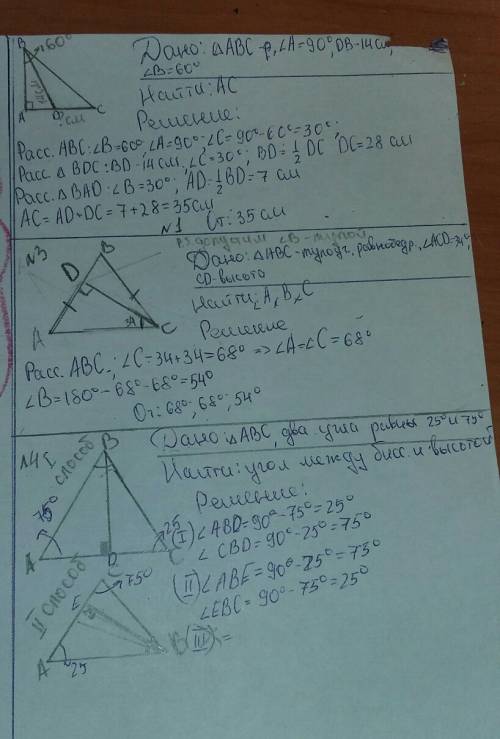 B 60°
14см
A D C
?см
Дано: △ABC-р, ∠A=90°, DB-14см,
∠B=60°
Найти: AC
Решение:
Расс. ABC: ∠B=60°, ∠A=90°. ∠C=90°-60°=30°;
Расс. △BDC: BD-14см. ∠C=30°; BD=½DC DC=28см
Расс. △BAD: ∠B=30°, AD=½BD=7см
AC=AD+DC=7+28=35см
От: 35см
N1
допустим ∠B-тупой
N3
B
D
A C
34
Дано: △ABC-тупоуг., равнобедр., ∠ACD=34°,
CD-высото
Найти: ∠A, B, ∠C
Решение
Расс. ABC.; ∠C=34+34=68° => ∠A=∠C=68°
∠B=180°-68°-68°=54°
От: 68°; 68°; 54°
N4 I способ
B
75° 25
A D C
Дано: △ABC, два угла равны 25° и 75°
Найти: угол между бисс. и высотой
Решение:
(I) ∠ABD=90°-75°=25°
∠CBD=90°-25°=75°
II способ
C 75°
E
A 25 B
(II) ∠ABE=90°-25°=75°
∠EBC=90°-75°=25°
(III) =